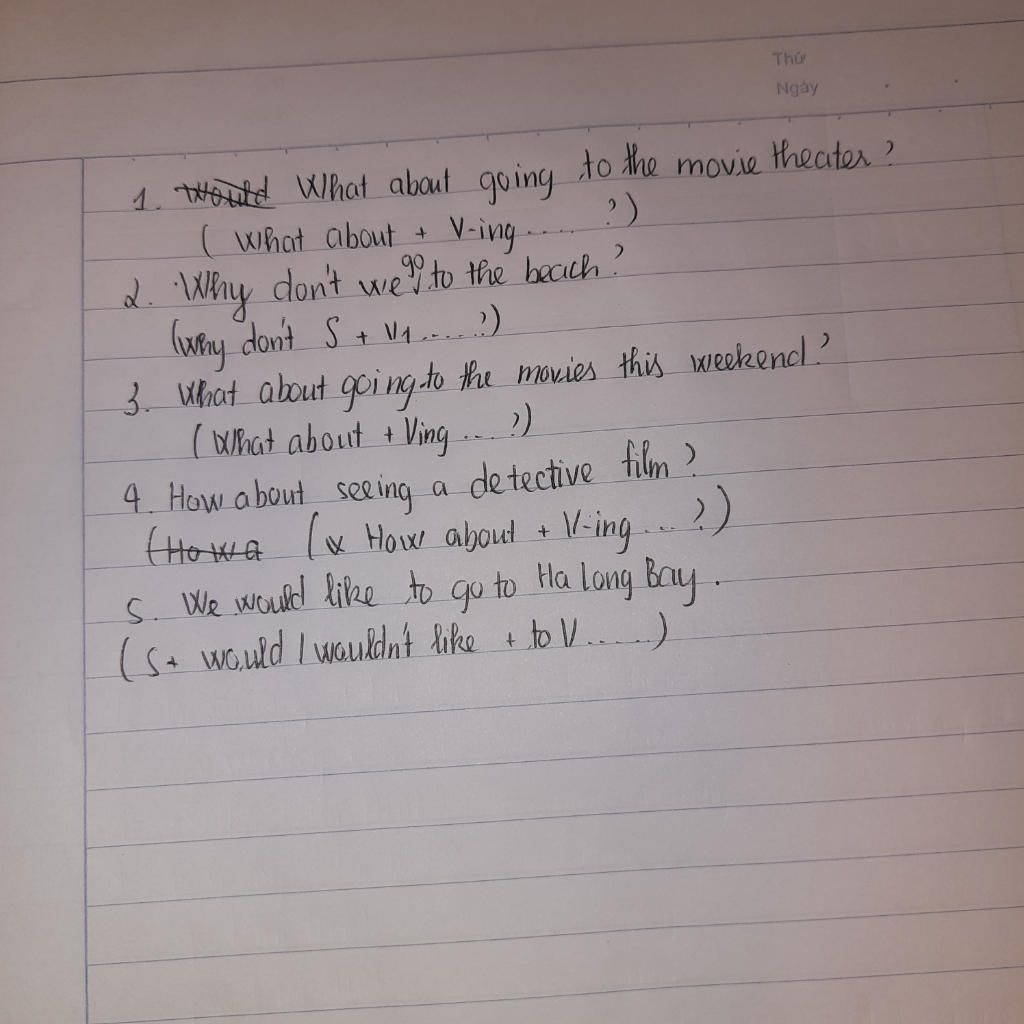 Thứ
Ngày
1. Would What about going to the movie theater?
( What about + V-ing ..... ?)
2. Why don't we go to the beach?
(Why don't S + V1 ......?)
3. What about going to the movies this weekend?
( What about + Ving ... ?)
4. How about seeing a detective film?
(How a ( How about + V-ing ... ?)
5. We would like to go to Ha Long Bay.
( S + would / wouldn't like + to V ...... )